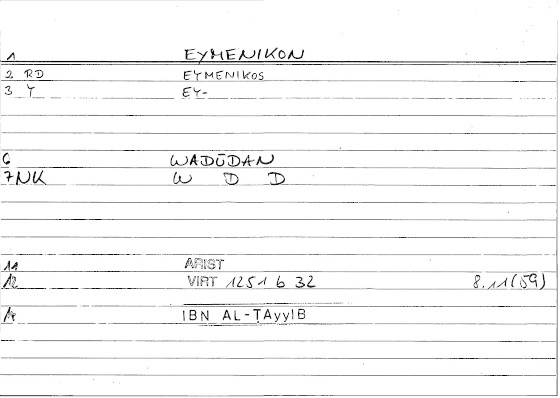 1 EYMENIKON
2 RD EYMENIKOS
3 Y EY-
6 WADŪDAN
7NK W D D
11 ARIST
12 VIRT 1251 b 32 8.11(59)
IBN AL-ṬAyyIB